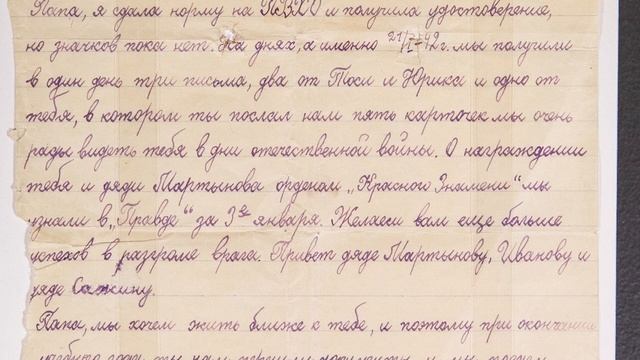 Папа, я сдала норму на ПВХО и получила удостоверение,
но значков пока нет. На днях, а именно 21/I-42 г. мы получили
в один день три письма, два от Тоси и Юрика и одно от
тебя, в котором ты послал нам пять карточек. мы очень
рады видеть тебя в дни отечественной войны. О награждении
тебя и дяди Мартынова орденом „Красного Знамени" мы
узнали в „Правде" за 3е января. Желаем вам еще больше
успехов в разгроме врага. Привет дяде Мартынову, Иванову и
дяде
Папа, мы хотим жить ближе к тебе, и поэтому при окончании